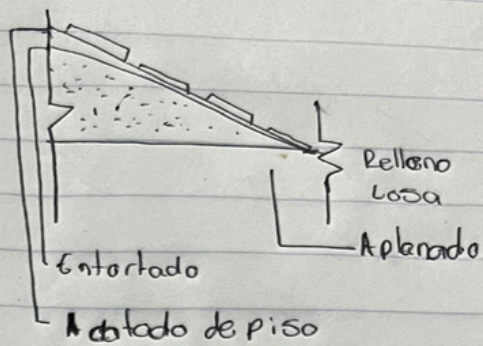 Relleno
Losa
Aplanado
Entortado
Acabado de piso